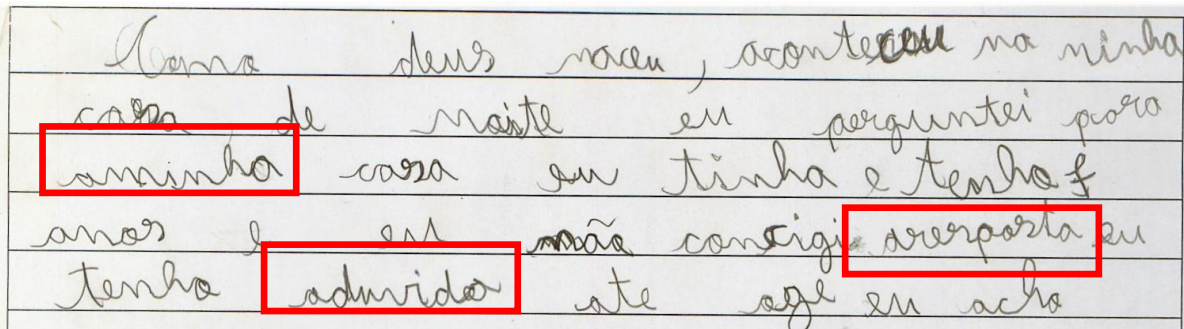 Como deus naceu, aconteceu na ninha
casa, de noite eu perguntei para
aminha casa eu tinha e tenho 7
anos e eu não concigi aresposta eu
tenho aduvida ate oge eu acho